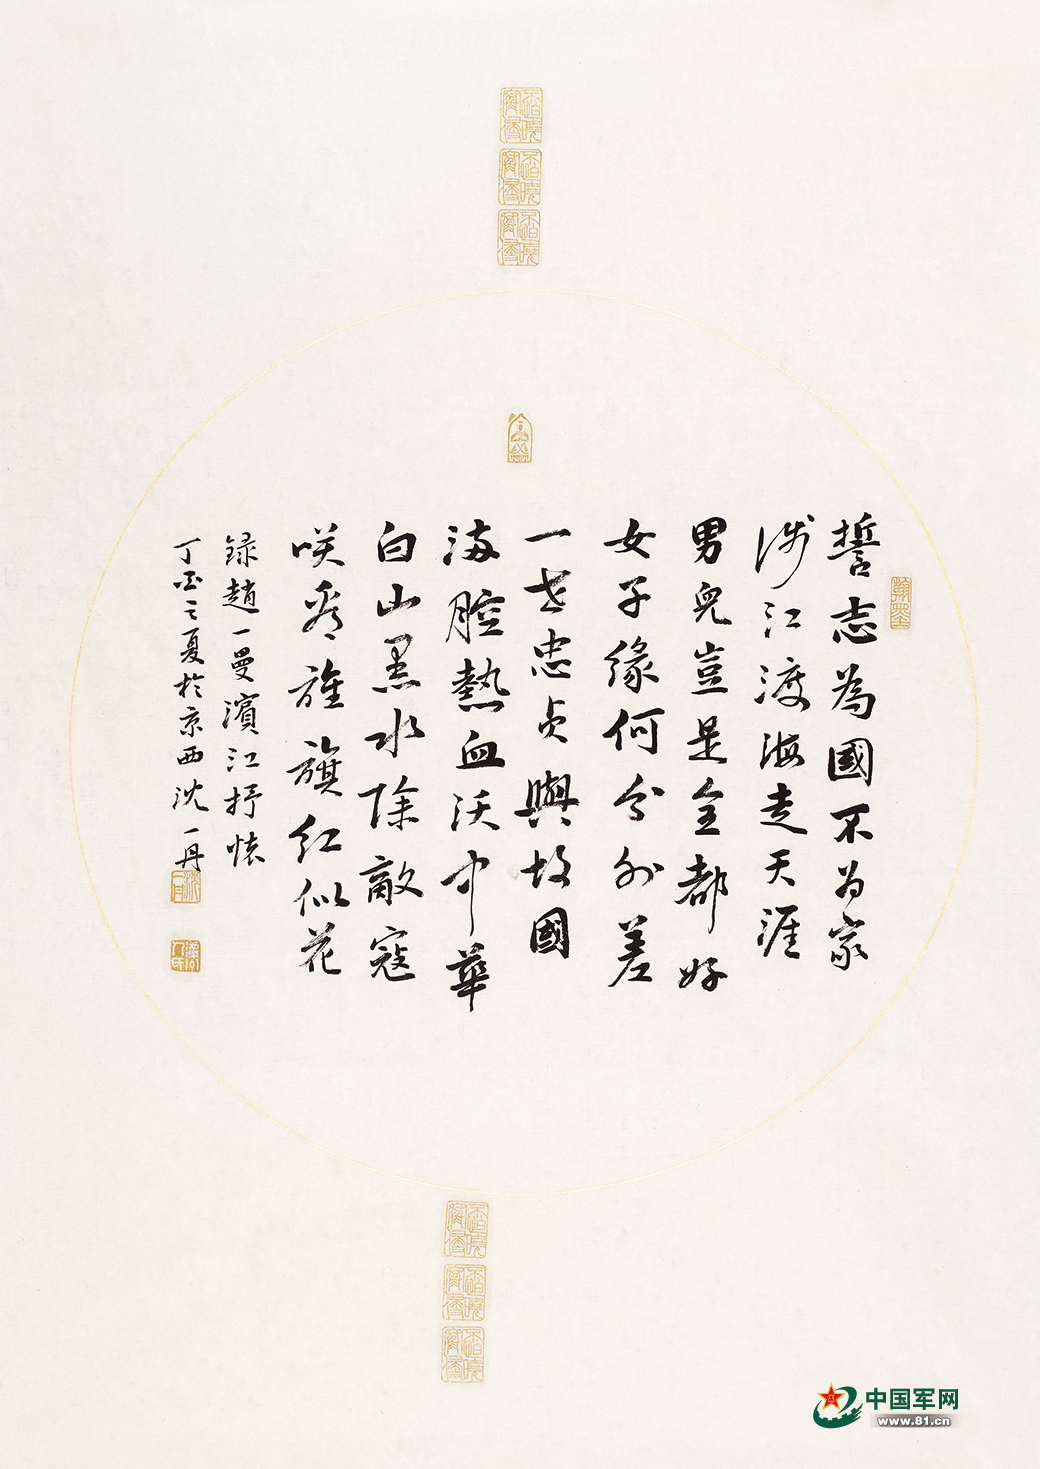 翰墨
誓志為國不为家
涉江渡海走天涯
男兒豈是全都好
女子緣何分外差
一世忠贞與故國
满腔熱血沃中華
白山黑水除敵寇
咲看旌旗红似花
録趙一曼濱江抒懷
丁酉之夏於京西沈一丹
沈一丹
中国军网
www.81.cn